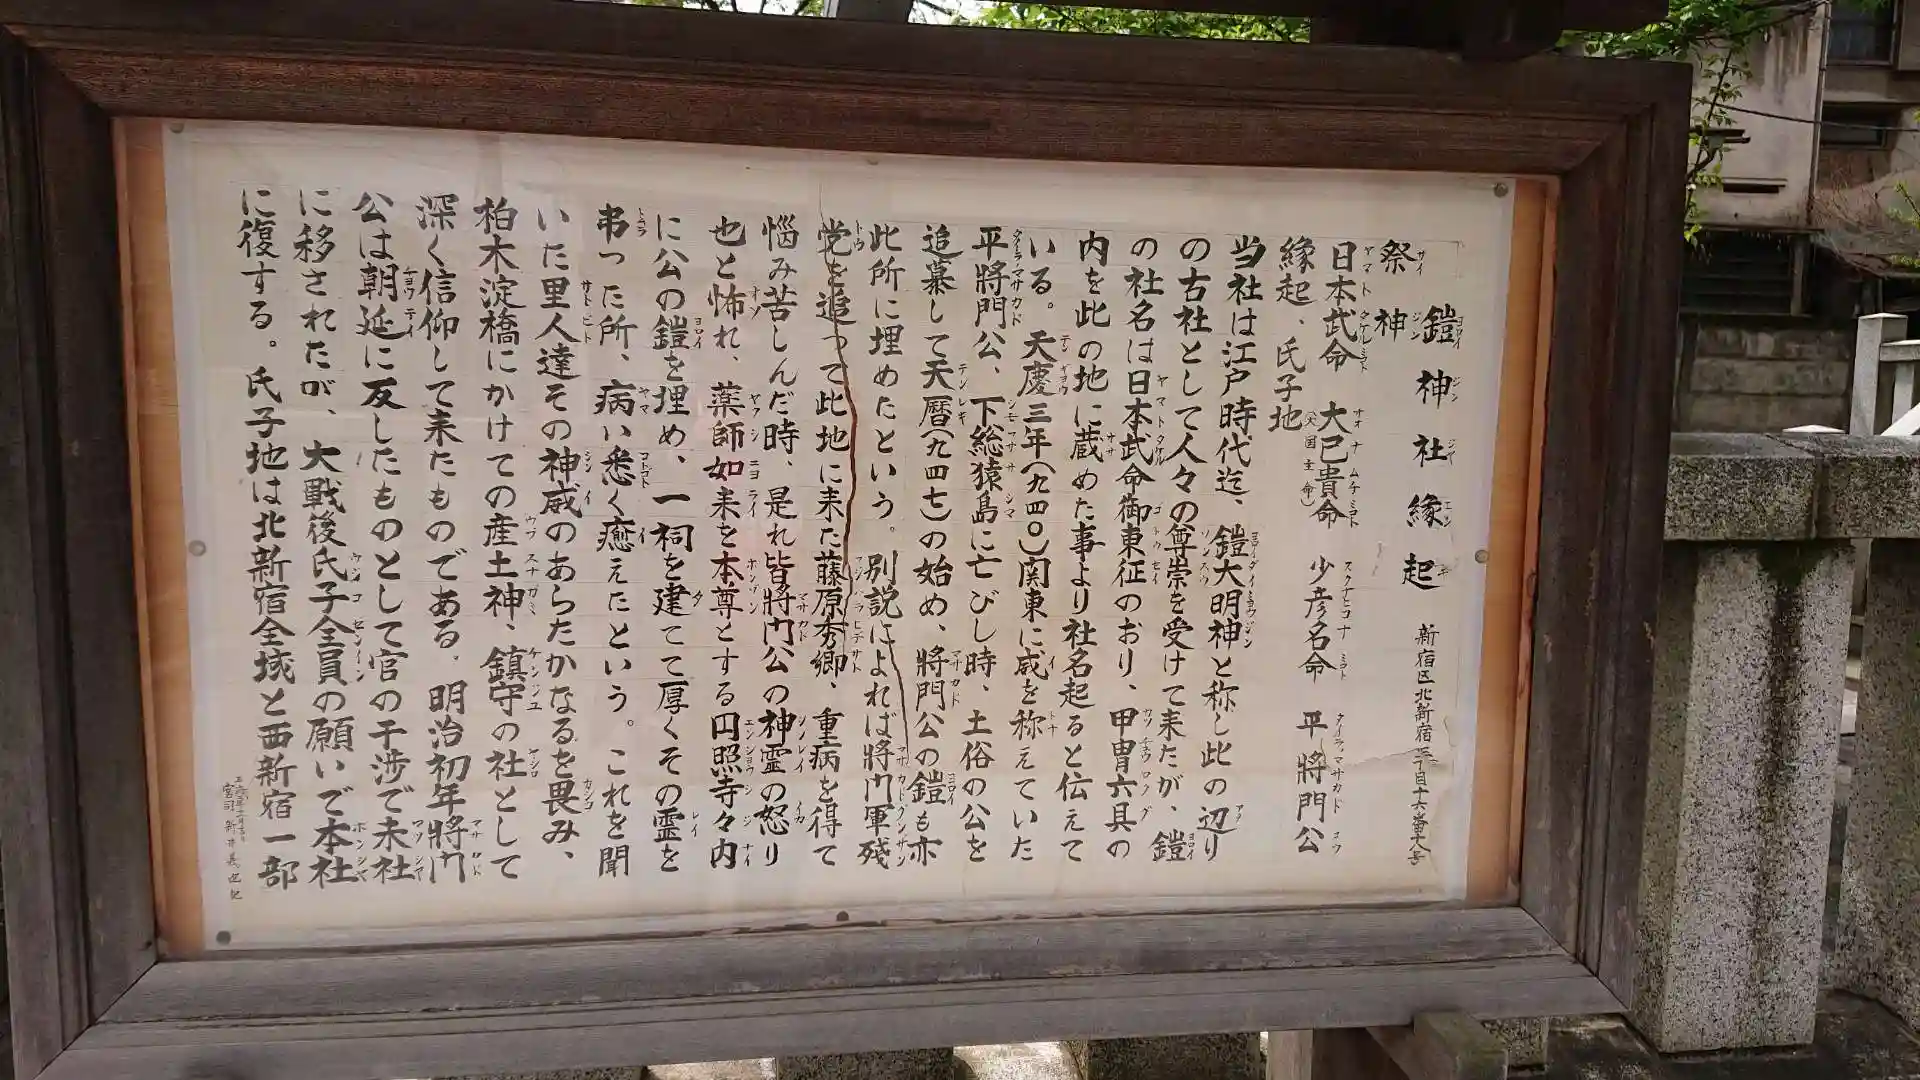 鎧神社縁起 新宿区北新宿三丁目十六番十八号
祭神
日本武命 大己貴命(大国主命) 少彦名命 平將門公
縁起、氏子地
当社は江戸時代迄、鎧大明神と称し此の辺り
の古社として人々の尊崇を受けて来たが、鎧
の社名は日本武命御東征のおり、甲冑六具の
内を此の地に蔵めた事より社名起ると伝えて
いる。天慶三年(九四〇)関東に威を称えていた
平將門公、下総猿島に亡びし時、土俗の公を
追慕して天暦(九四七)の始め、將門公の鎧も亦
此所に埋めたという。別説によれば將門軍残
党を追って此地に来た藤原秀郷、重病を得て
悩み苦しんだ時、是れ皆將門公の神霊の怒り
也と怖れ、薬師如来を本尊とする円照寺々内
に公の鎧を埋め、一祠を建てて厚くその霊を
弔った所、病い悉く癒えたという。これを聞
いた里人達その神威のあらたかなるを畏み、
柏木淀橋にかけての産土神、鎮守の社として
深く信仰して来たものである。明治初年將門
公は朝延に反したものとして官の干渉で末社
に移されたが、大戰後氏子全員の願いで本社
に復する。氏子地は北新宿全域と西新宿一部
宮司 新井